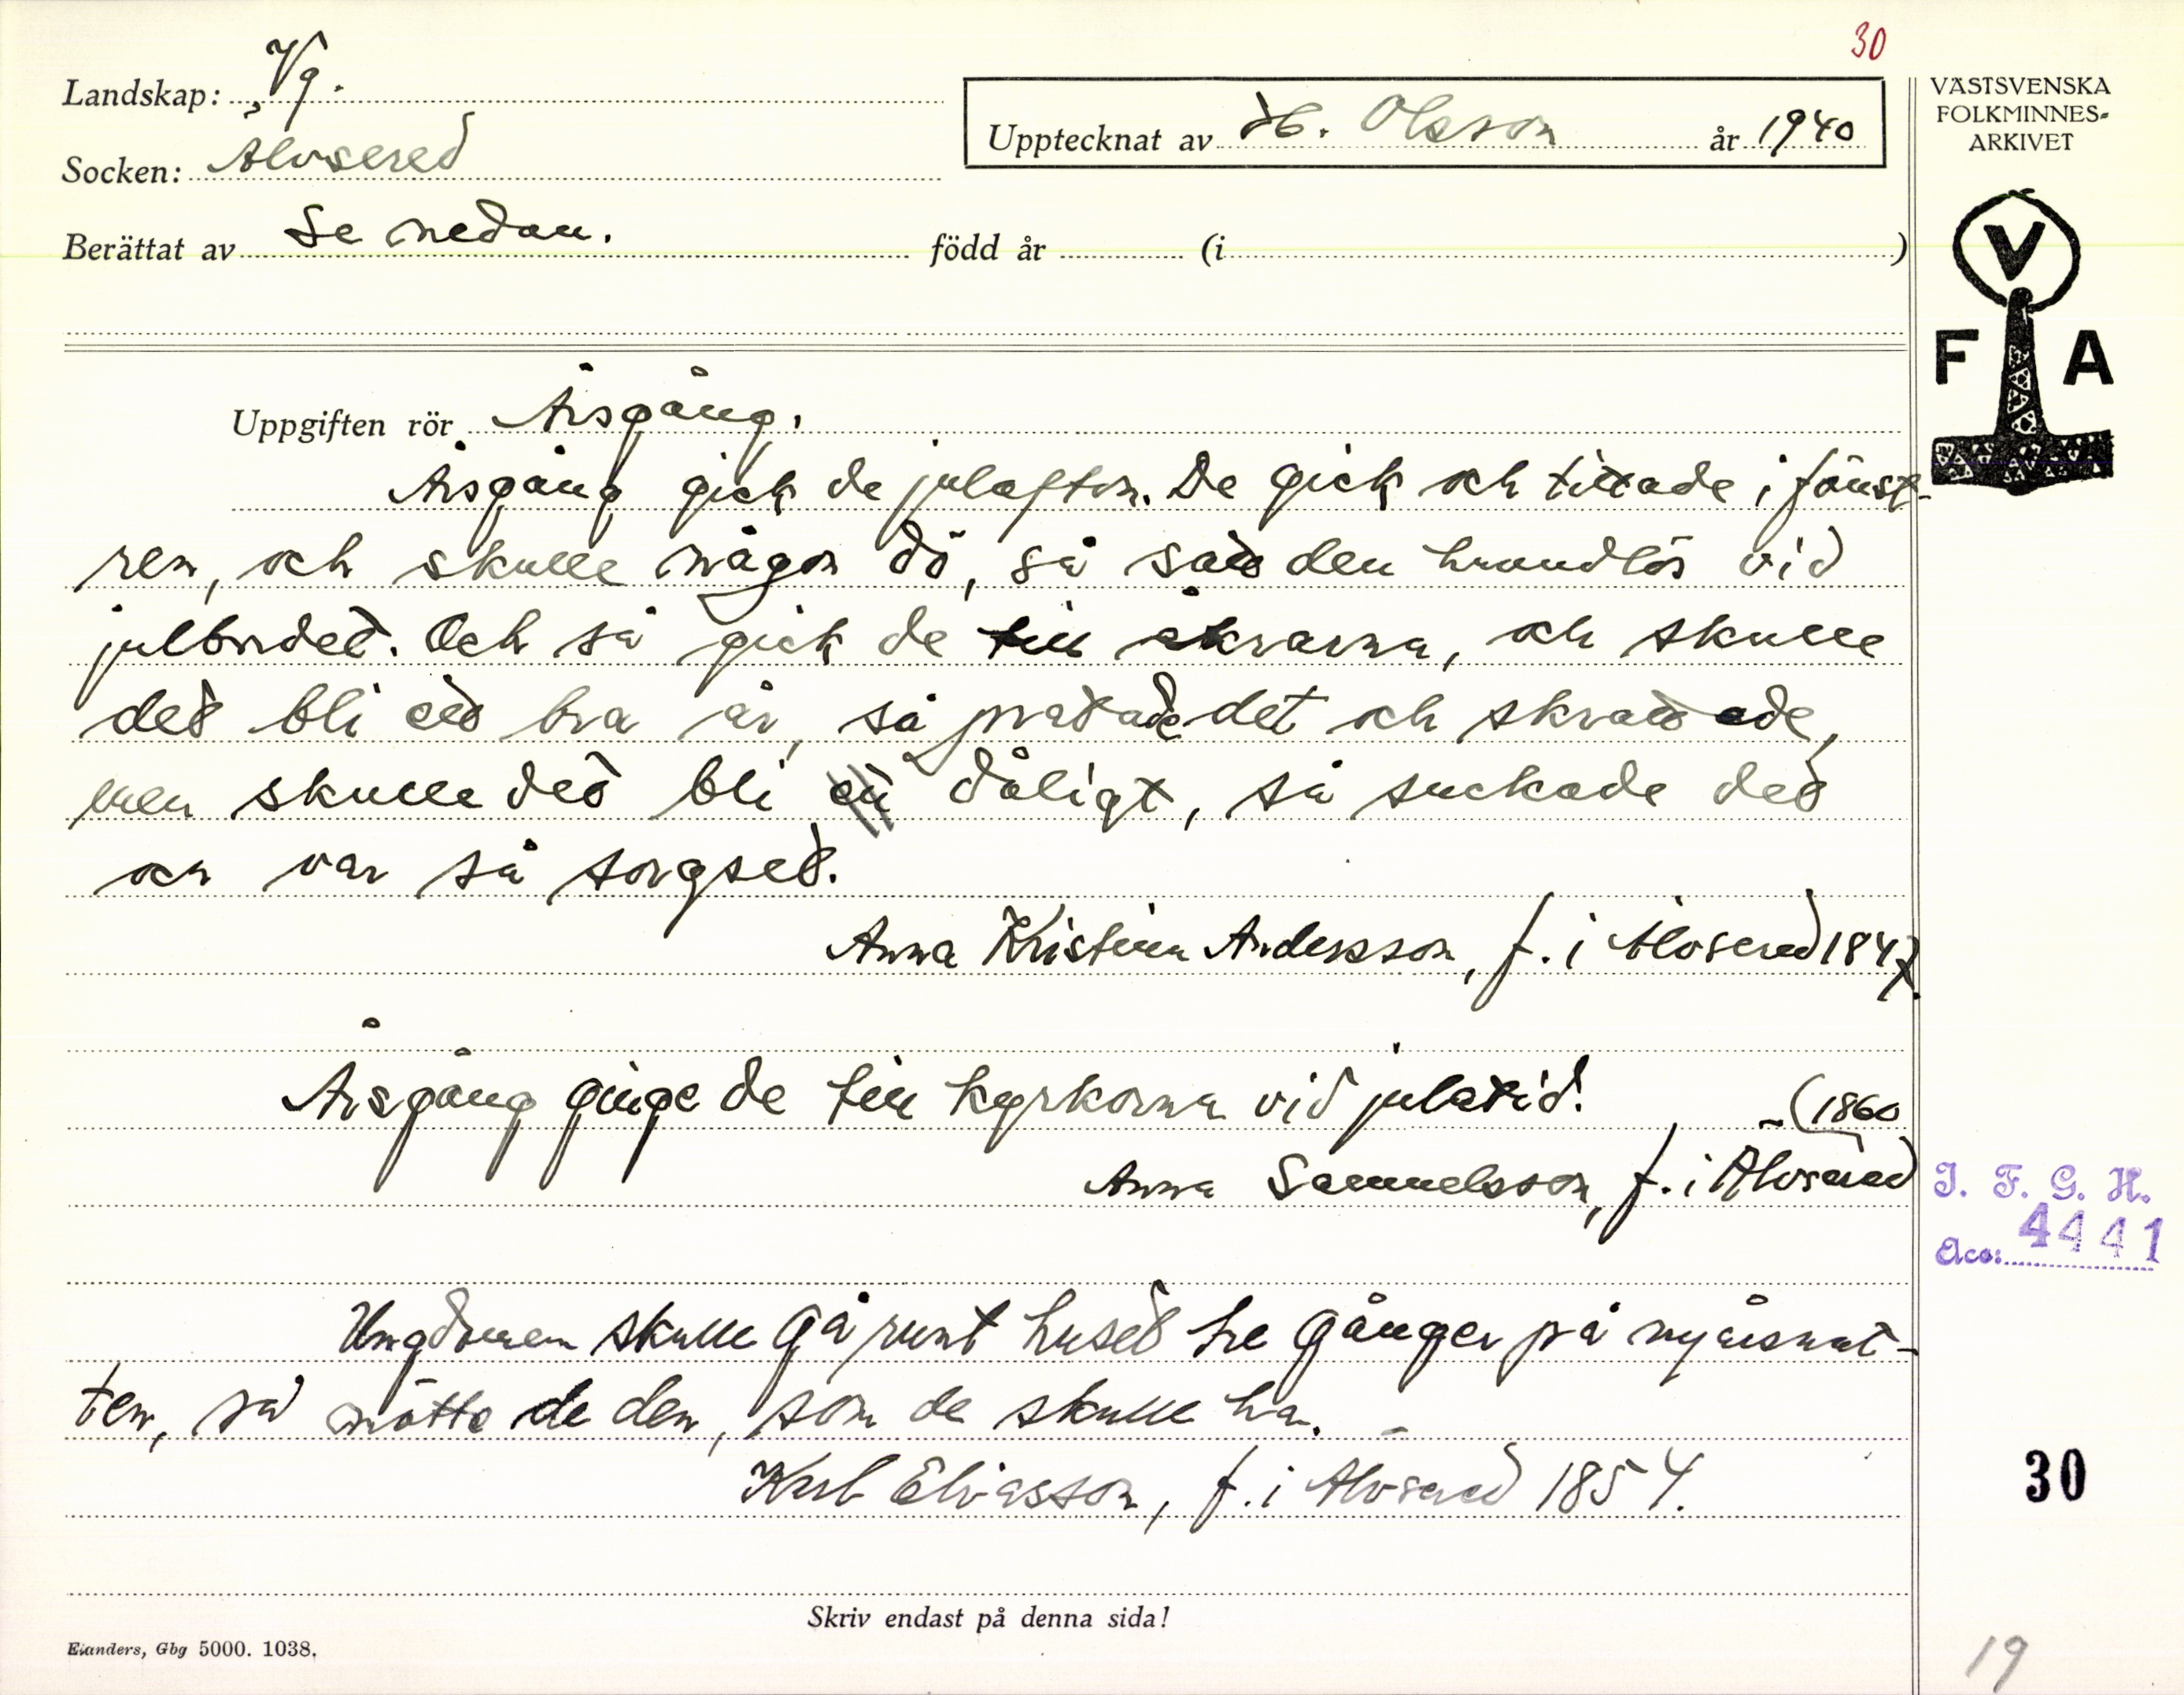 30
Landskap: Vg.
Upptecknat av H. Olsson år 1940
VÄSTSVENSKA
FOLKMINNES-
ARKIVET
Socken: Älvsered
Berättat av Se nedan. född år (i )
V
F A
Uppgiften rör Årsgång.
Årsgång gick de julafton. De gick och tittade i fönst-
ren, och skulle någon dö, så satt den huvudlös vid
julbordet. Och så gick de till åkrarna, och skulle
det bli ett bra år, så pratade det och skrattade,
men skulle det bli dåligt, så suckade det
och var så sorgset.
Anna Kristina Andersson, f. i Älvsered 1847.
Årsgång ginge de till kyrkorna vid juletid.
Anna Samuelsson, f. i Älvsered (1860
I. F. G. H.
Acc: 4441
Ungdomen skulle gå runt huset tre gånger på nyårsnat-
ten, så mötte de den, som de skulle ha.
Karl Eliasson, f. i Älvsered 1854.
30
Skriv endast på denna sida!
Elanders, Gbg 5000. 1038.
19